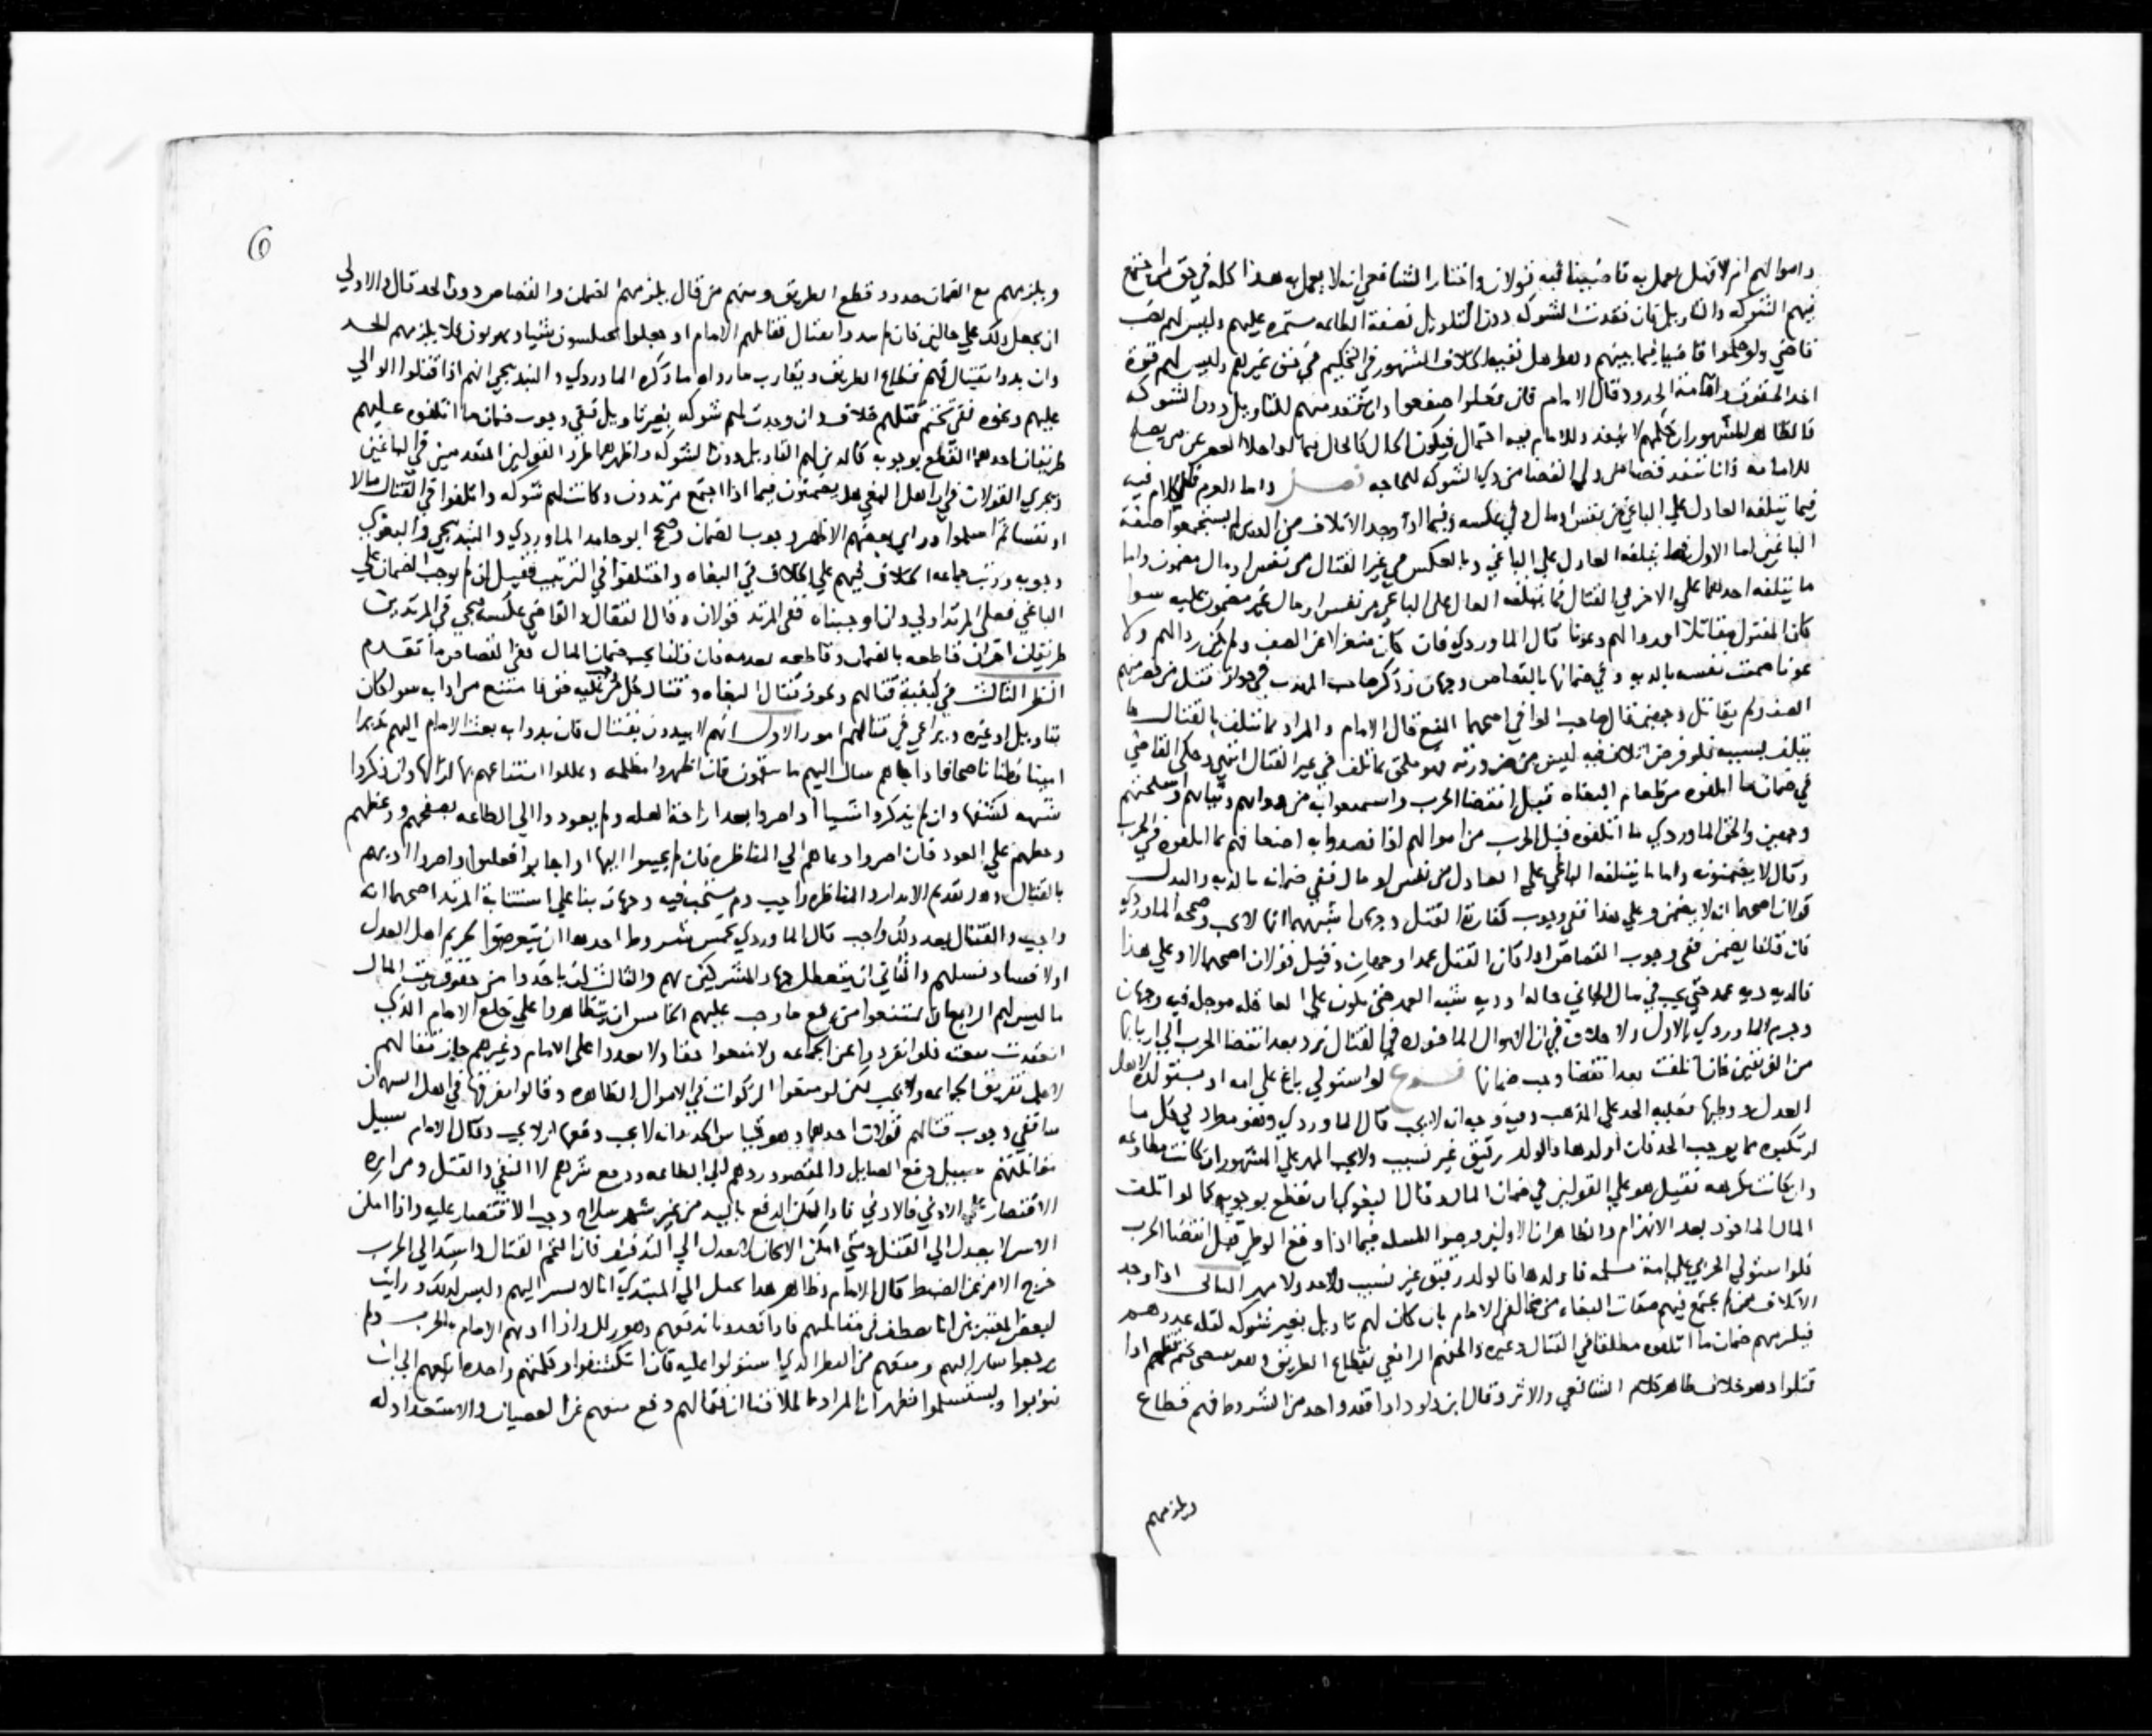 واموالهم انه لا تقبل يعمل به قاضينا فيه قولان واختار الشافعي انه لا يعمل به هذا كله في حق من اجتمع
فيهم الشوكه والتاويل فان فقدت الشوكه دون التاويل وليس لهم نصب
قاضي ولو حكموا قاضيا فيما بينهم كخلاف المشهور في التحكيم في حق غيرهم وليس لهم قوة
اخذ الحقوق واقامة الحدود قال الامام فان فعلوا ضمنوا وان دون الشوكه
فالظاهر المشهور ان حكمهم لا ينفد وللامام فيه احتمال فيكون الحال كالحال
للامامه فانا ننفد قضا من ولي القضا من ذي الشوكه للحاجه فصل واما الغرم فالكلام فيه
فيما يتلفه العادل علي الباغي من نفس او مال وفي عكسه وفيما اذا وجد الاتلاف ممن لم يستجمعوا صفة
الباغين اما الاول فما يتلفه العادل علي الباغي وبالعكس في غير القتال من نفس او مال مضمون واما
ما يتلفه احدهما علي الاخر في القتال فما يتلفه العادل علي الباغي من نفس او مال غير مضمون عليه سوا
كان المقتول مقاتلا او ردا لهم وعونا قال الماوردي فان كان منعزلا عن الصف ولم يكن ردا لهم ولا
عونا ضمنت نفسه بالديه وفي ضمانها بالقصاص وجهان وذكر صاحب المهذب في جواز قتل من حضر منهم
الصف ولم يقاتل وجهين قال صاحب الوافي اصحهما المنع قال الامام والمراد ما تتلف بالقتال ما
يتلف بسببه فلو فرض اتلاف فيه ليس من ضرورته فهو ملحق بما تلف في غير القتال انتهي وحكي القاضي
في ضمان ما اتلفوه من طعام البغاه قبل انقضا الحرب واستمتعوا به من دوابهم وثيابهم واسلحتهم
وجهين والحق الماوردي ما اتلفوه قبل الحرب من اموالهم اذا قصدوا به اضعافهم بما اتلفوه في الحرب
وقال لا يضمنونه واما ما يتلفه الباغي علي العادل من نفس او مال ففي ضمانه بالديه والبدل
قولان اصحهما انه لا يضمن وعلي هذا ففي وجوب كفارة القتل وجهان اشبههما انها لا تجب وصححه الماوردي
فان قلنا يضمن ففي وجوب القصاص اذا كان القتل عمدا وجهان وقيل قولان اصحهما لا وعلي هذا
فالديه ديه عمد حتي يجب في مال الجاني حاله او ديه شبه العمد حتي يكون علي العاقله موجله فيه وجهان
وجزم الماوردي بالاول ولا خلاف في ان الاموال الماخوده في القتال ترد بعد انقضا الحرب الي اربابها
من الفريقين فان تلفت بعد انقضا وجب ضمانها فروع لو استولي باغ علي امه او مستولده لاهل
العدل ووطيها فعليه الحد علي المذهب وفيه وجه انه لا يجب قال الماوردي وهو مطرد في كل ما
ارتكبوه مما يوجب الحد فان اولدها فالولد رقيق غير نسيب ولا يجب المهر علي المشهور ان كانت مطاوعه
وان كانت مكرهه فقيل هو علي القولين في ضمان المال وقال البغوي ان نقطع بوجوبه كما لو اتلف
المال الماخوذ بعد الانهزام والظاهر ان الاولين وجهوا المسله فيما اذا وقع الوطي قبل انقضا الحرب
فلو استولي الحربي علي امة مسلمه فاولدها فالولد رقيق غير نسيب ولا حد ولا مهر الثاني اذا وجد
الاتلاف ممن لم يجتمع فيهم صفات البغاه من مخالفي الامام بان كان لهم تاويل بغير شوكه لقله عددهم
فيلزمهم ضمان ما اتلفوه مطلقا في القتال وغيره والحقهم الرافعي بقطاع الطريق وهو يقتضي تحتم قتلهم اذا
قتلوا وهو خلاف ظاهر كلام الشافعي والاثر وقال ابن داود اذا فقد واحد من الشروط فهم قطاع
ويلزمهم
6
ويلزمهم مع الضمان حدود قطع الطريق ومنهم من قال يلزمهم الضمان والقصاص دون الحد قال والاولي
ان يجعل ذلك علي حالين فان لم يبدوا بقتال فقاتلهم الامام او فلا يلزمهم الحد
وان بدوا بقتال فهم قطاع الطريق ويقارب ما رواه ما ذكره الماوردي والبندنيجي انهم اذا قتلوا الوالي
عليهم ونحوه ففي تحتم قتلهم خلاف وان وجدت لهم شوكه بغير تاويل ففي وجوب ضمان ما اتلفوه عليهم
طريقان احدهما القطع بوجوبه كالذين لهم التاويل دون الشوكه واظهرهما طرد القولين المتقدمين في الباغين
ويجري القولان في ان اهل البغي هل يضمنون فيما اذا اجتمع مرتدون وكانت لهم شوكه واتلفوا في القتال مالا
او نفسا ثم اسلموا وراي بعضهم الاظهر وجوب الضمان وصحح ابو حامد الماوردي والبندنيجي والبغوي
وجوبه ورتب جماعه الخلاف فيهم علي الخلاف في البغاه واختلفوا في الترتيب فقيل ان لم نوجب الضمان علي
الباغي فعلي المرتد اولي وان اوجبناه ففي المرتد قولان وقال القفال والقاضي عكسه ويجي في المرتدين
طريقان اخران قاطعه بالضمان وقاطعه بعدمه فان قلنا يجب ضمان المال ففي القصاص ما تقدم
النظر الثالث في كيفية قتالهم ونحوز قتال البغاه وقتال كل من عليه حق فامتنع من ادايه سوا كان
بتاويل او غيره ويراعي في قتالهم امور الاول انهم لا يبدون بقتال فان بدوا به بعث الامام اليهم نذيرا
امينا فطنا ناصحا فاذا جاهم سال اليهم ما ينقمون فان اظهروا مظلمه وعللوا امتناعهم بها ازالها وان ذكروا
شبهه كشفها وان لم يذكروا شيا او اصروا بعد ازاحة العله ولم يعودوا الي الطاعه نصحهم ووعظهم
وحظهم علي العود فان اصروا دعاهم الي المناظره فان لم يجيبوا اليها او اجابوا فغلبوا واصروا اذنهم
بالقتال وهل تقديم الانذار والمناظره واجب ام مستحب فيه وجهان بنا علي استتابة المرتد اصحهما انه
واجب والقتال بعد ذلك واجب قال الماوردي بخمس شروط احدها ان يتعرضوا لحريم اهل العدل
او لافساد نسلهم والثاني ان يتعطل جهاد المشركين بهم والثالث ان ياخذوا من حقوق بيت المال
ما ليس لهم الرابع ان يمتنعوا من دفع ما وجب عليهم الخامس ان يتظاهروا علي خلع الامام الذي
انعقدت بيعته فلو انفردوا عن الجماعه ولا منعوا حقا ولا تعدوا علي الامام وغيرهم جاز قتالهم
لاجل تفريق الجماعه ولا يجب لكن لو منعوا الزكوات في الاموال الظاهره وقالوا نفرقها في اهل السهمان
منا ففي وجوب قتالهم قولان احدهما وهو قياس الجديد انه لا يجب دفعها او لا يجب وقال الامام سبيل
مقاتلتهم سبيل دفع الصايل والمقصود ردهم الي الطاعه ودفع شرهم لا النفي والقتل ومرايره
الاقتصار علي الادني فالادني فاذا امكن الدفع باليد من غير شهر سلاح وجب الاقتصار عليه واذا امكن
الاسر لا يعدل الي القتل ومتي امكن الاثخان لا يعدل الي التذفيف فان التحم القتال واشتد الي الحرب
خرج الامر عن الضبط قال الامام وظاهر هذا يحمل الي المبتدي انا لا نسير اليهم وليس كذلك ورايت
لبعض المعتبرين انا نصطف في مقابلهم فاذا قصدونا ندفعهم وهو زلل واذا اذنهم الامام بالحرب ولم
يرجعوا سار اليهم ومنعهم من القطر الذي استولوا عليه فان انكشفوا وكلمتهم واحده اتبعهم الي ان
يتوبوا ويستسلموا فظهر ان المراد بما اطلقنا ان قتالهم دفع منعهم عن العصيان والاستعداد له